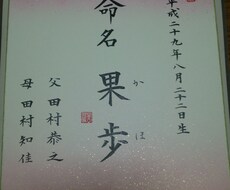 平成二十九年八月二十二日生
命名 果歩
かほ
父 田村恭之
母 田村知佳